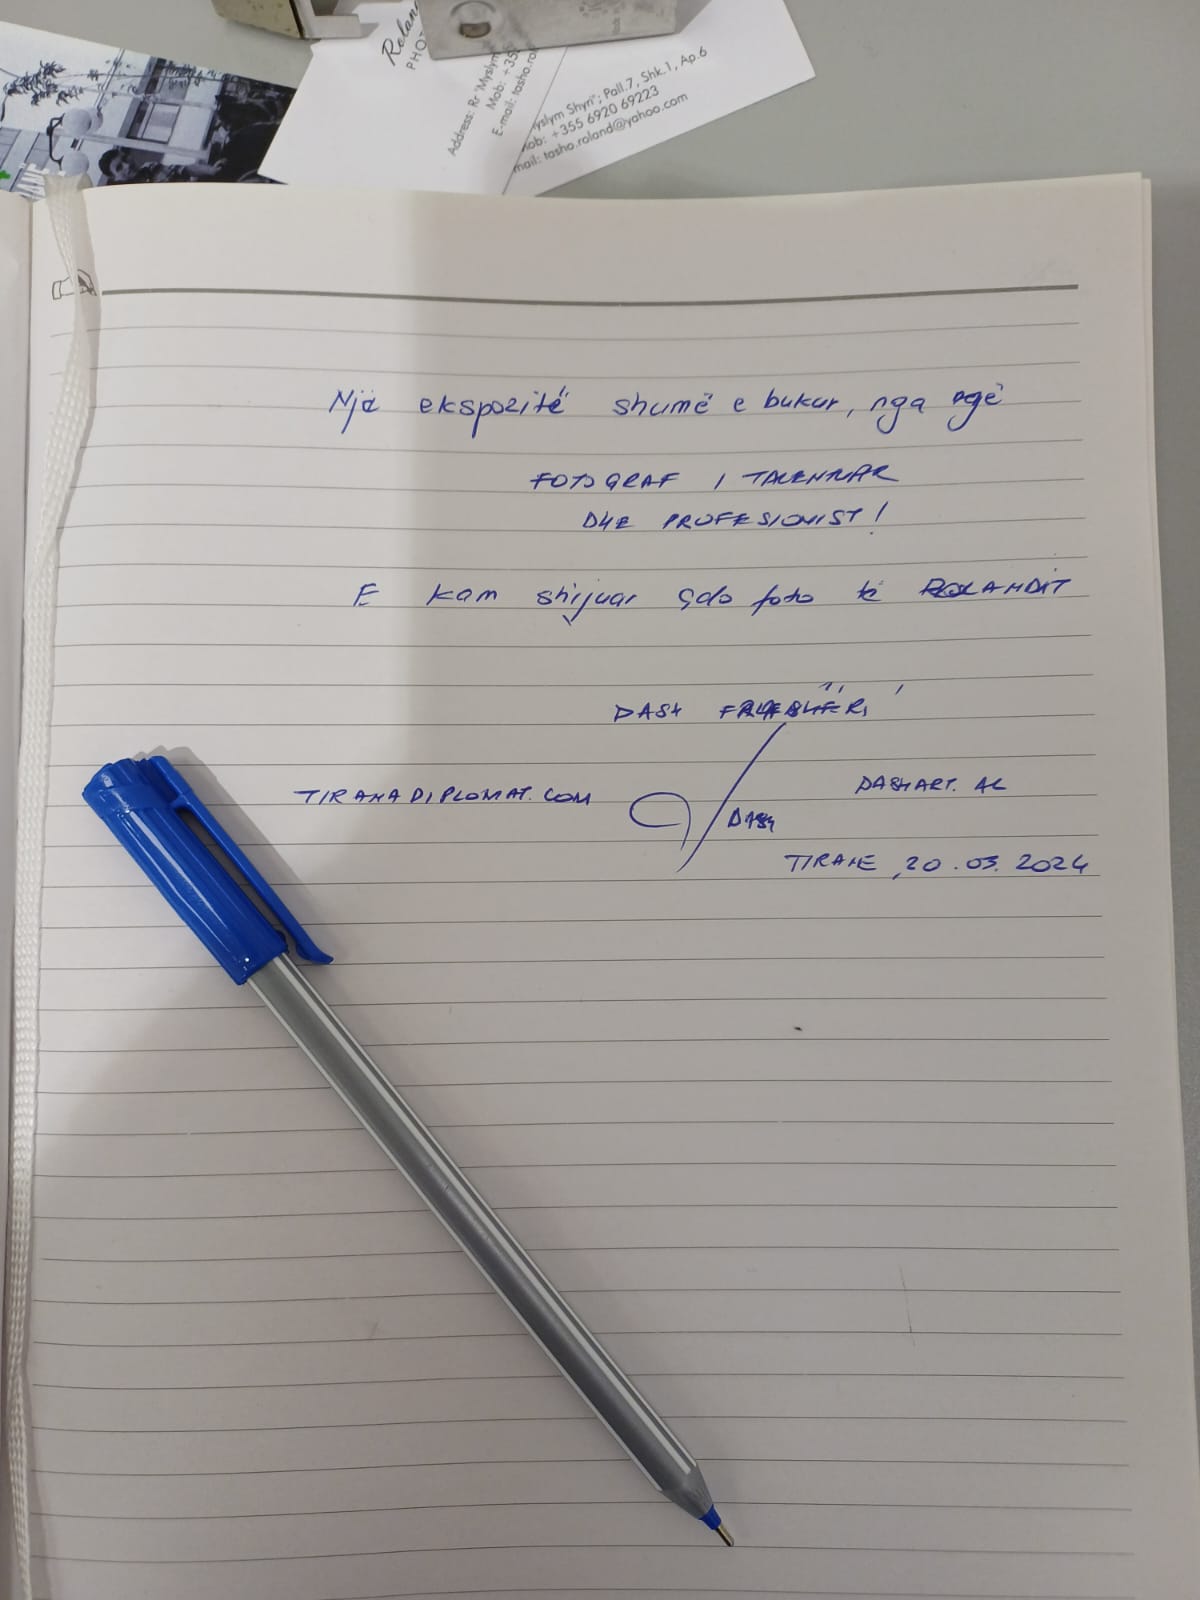 Roland
PHOT
Address: Rr "Myslym
Mob: +355
E-mail: tasho.ro
yslym Shyri"; Pall.7, Shk.1, Ap.6
ob: +355 6920 69223
mail: tasho.roland@yahoo.com
Një ekspozitë shumë e bukur, nga një
FOTOGRAF I TALENTUAR
DHE PROFESIONIST!
E kam shijuar çdo foto të ROLANDIT
DASH
TIRANADIPLOMAT.COM
DASHART.AL
DASH
TIRANE, 20.03.2024